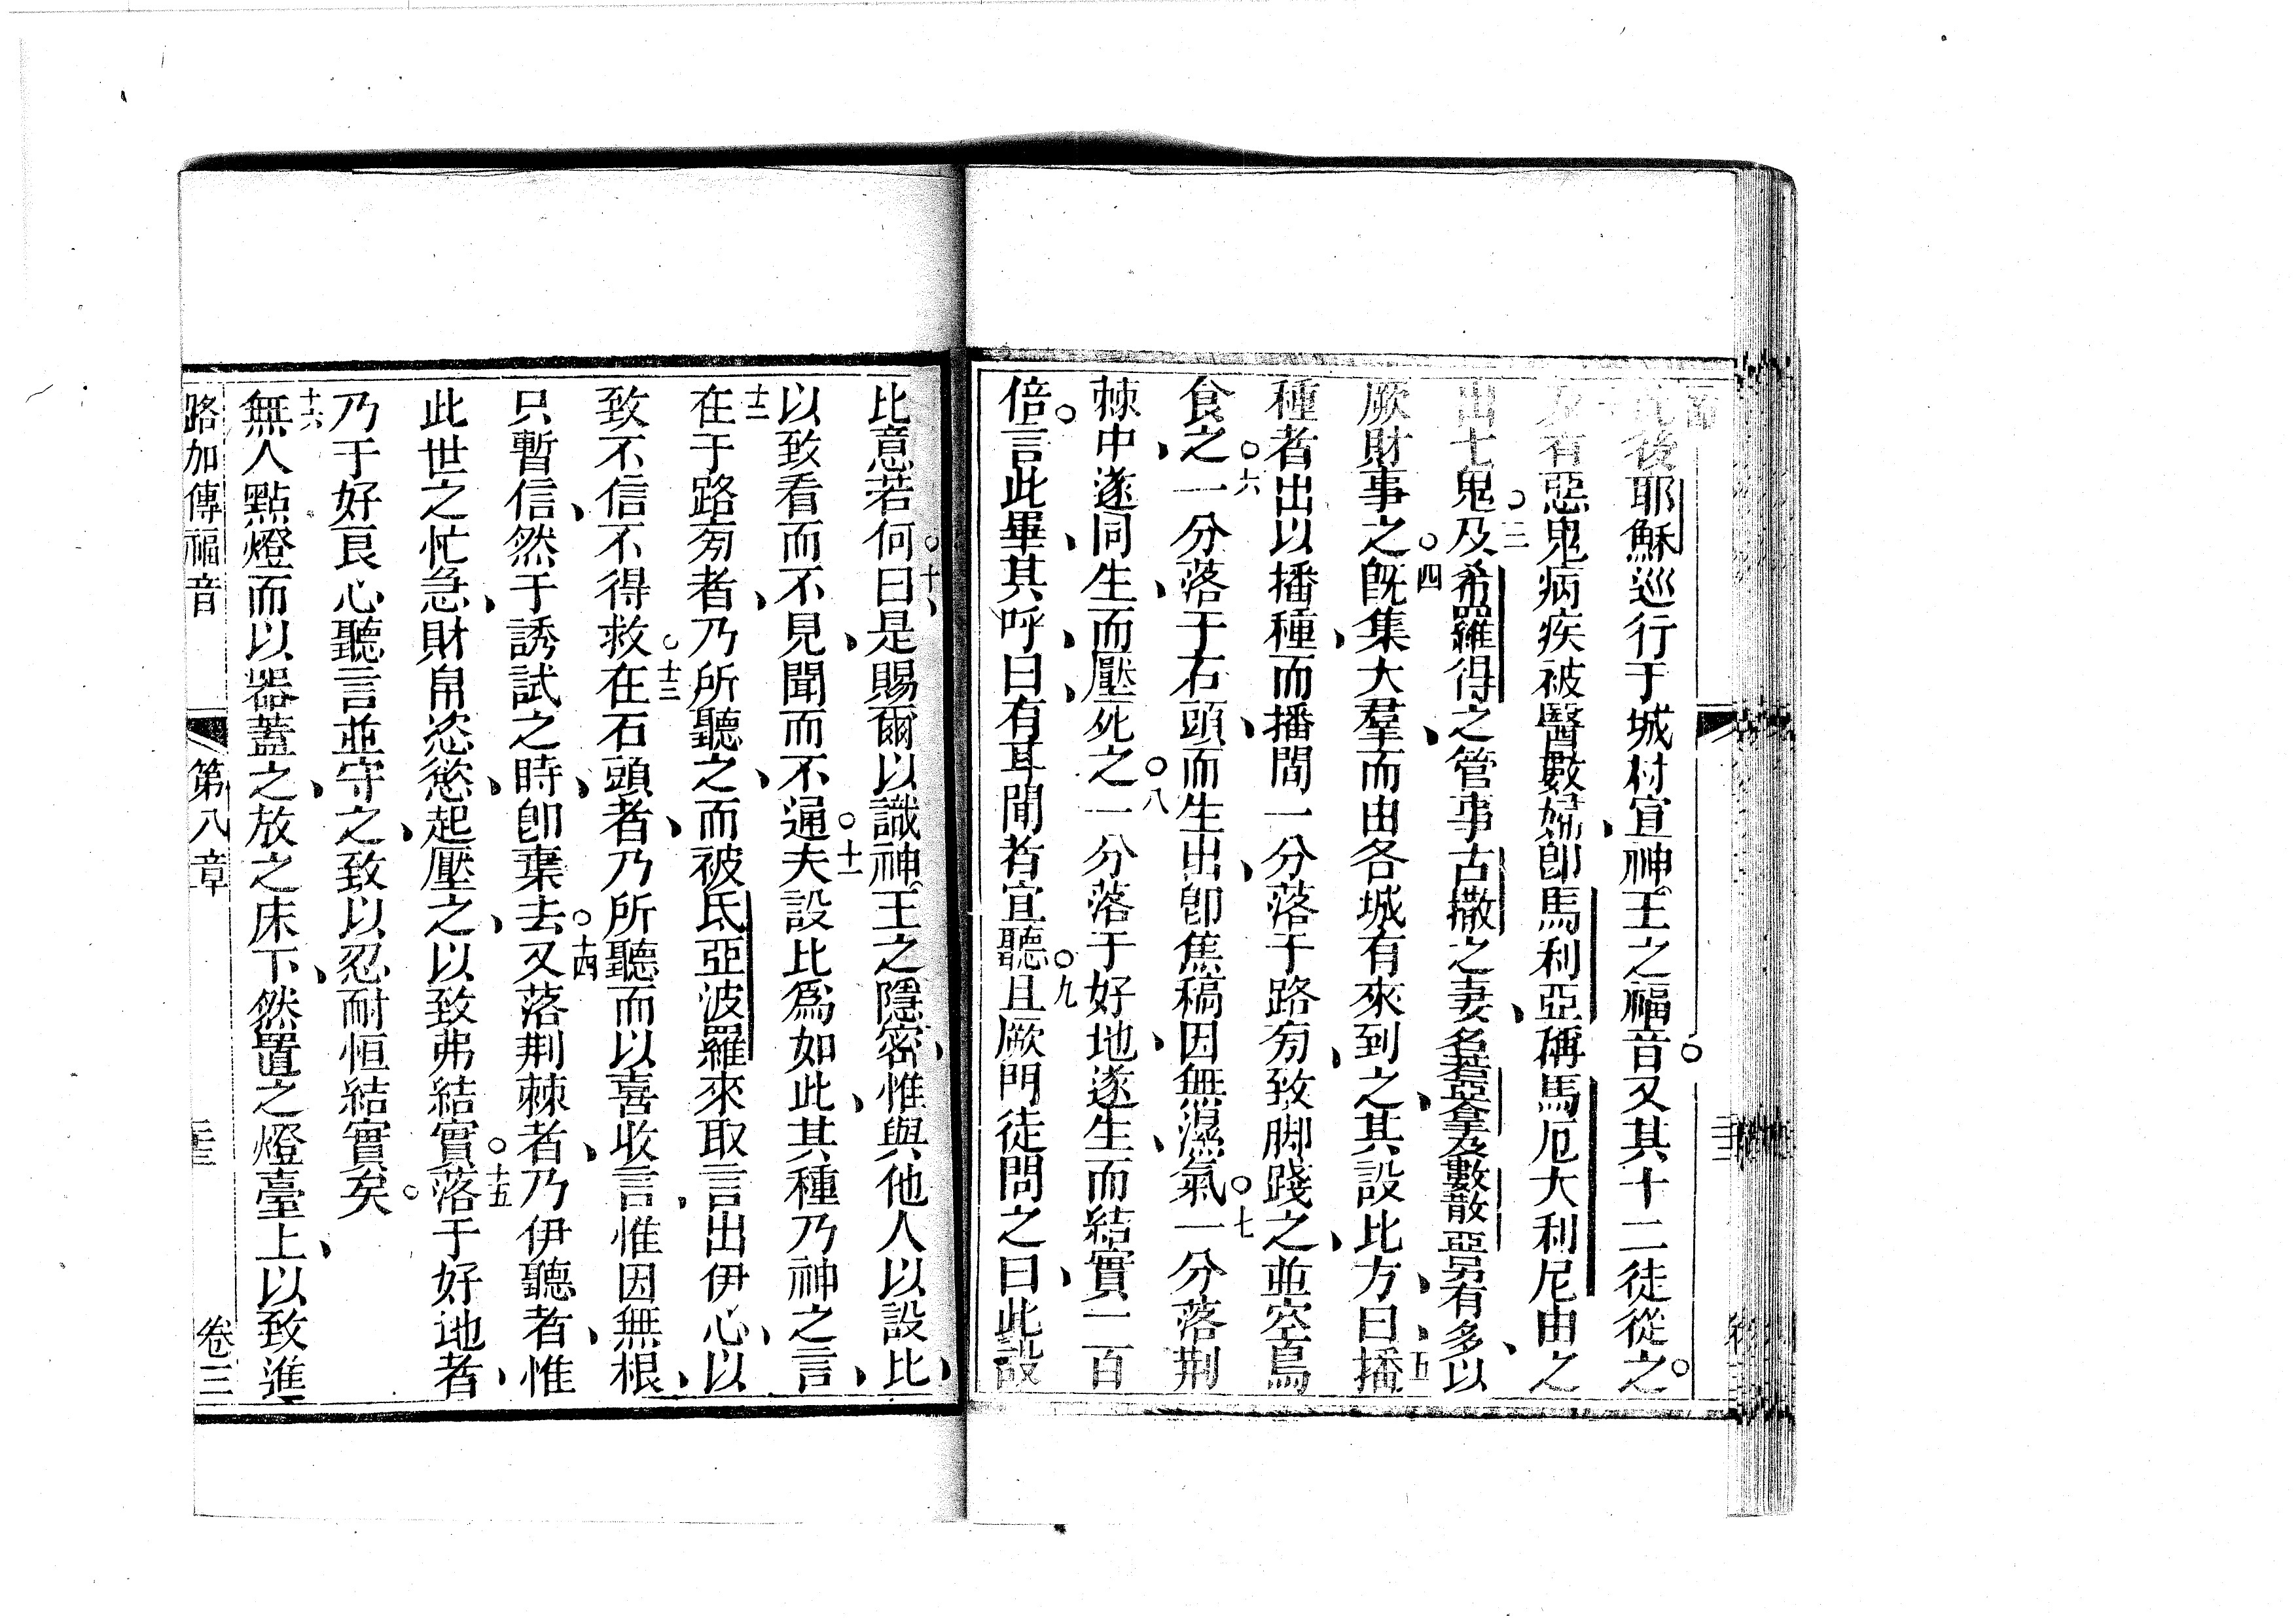 後耶穌巡行于城村宣神王之福音。又其十二徒從之。
有惡鬼病疾被醫數婦、卽馬利亞稱馬厄大利尼由之
出七鬼。三及希羅得之管事古撒之妻、名若亞拿及數散亞另有多、以
厥財事之。四旣集大羣、而由各城有來到之、其設比方、曰、五播
種者出以播種、而播間一分落于路旁、致脚踐之、並空鳥
食之、。六一分落于石頭、而生出、卽焦稿因無濕氣。七一分落荆
棘中遂同生、而壓死之。八一分落于好地、遂生、而結實一百
倍。言此畢、其呼、曰、有耳聞者宜聽。九且厥門徒問之曰、此設
比意若何。十曰、是賜爾以識神王之隱密、惟與他人以設比、
以致看而不見、聞而不通。十一夫設比爲如此、其種乃神之言、
十二在于路旁者、乃所聽之、而被氐亞波羅來取言出伊心、以
致不信不得救。十三在石頭者、乃所聽而以喜收言、惟因無根、
只暫信、然于誘試之時、卽棄去。十四又落荆棘者、乃伊聽者、惟
此世之忙急、財帛慾慾、起壓之、以致弗結實。十五落于好地者、
乃于好良心聽言並守之、致以忍耐恒結實矣。
十六無人點燈而以器蓋之、放之床下、然置之燈臺上、以致進
路加傳福音 第八章 卷三